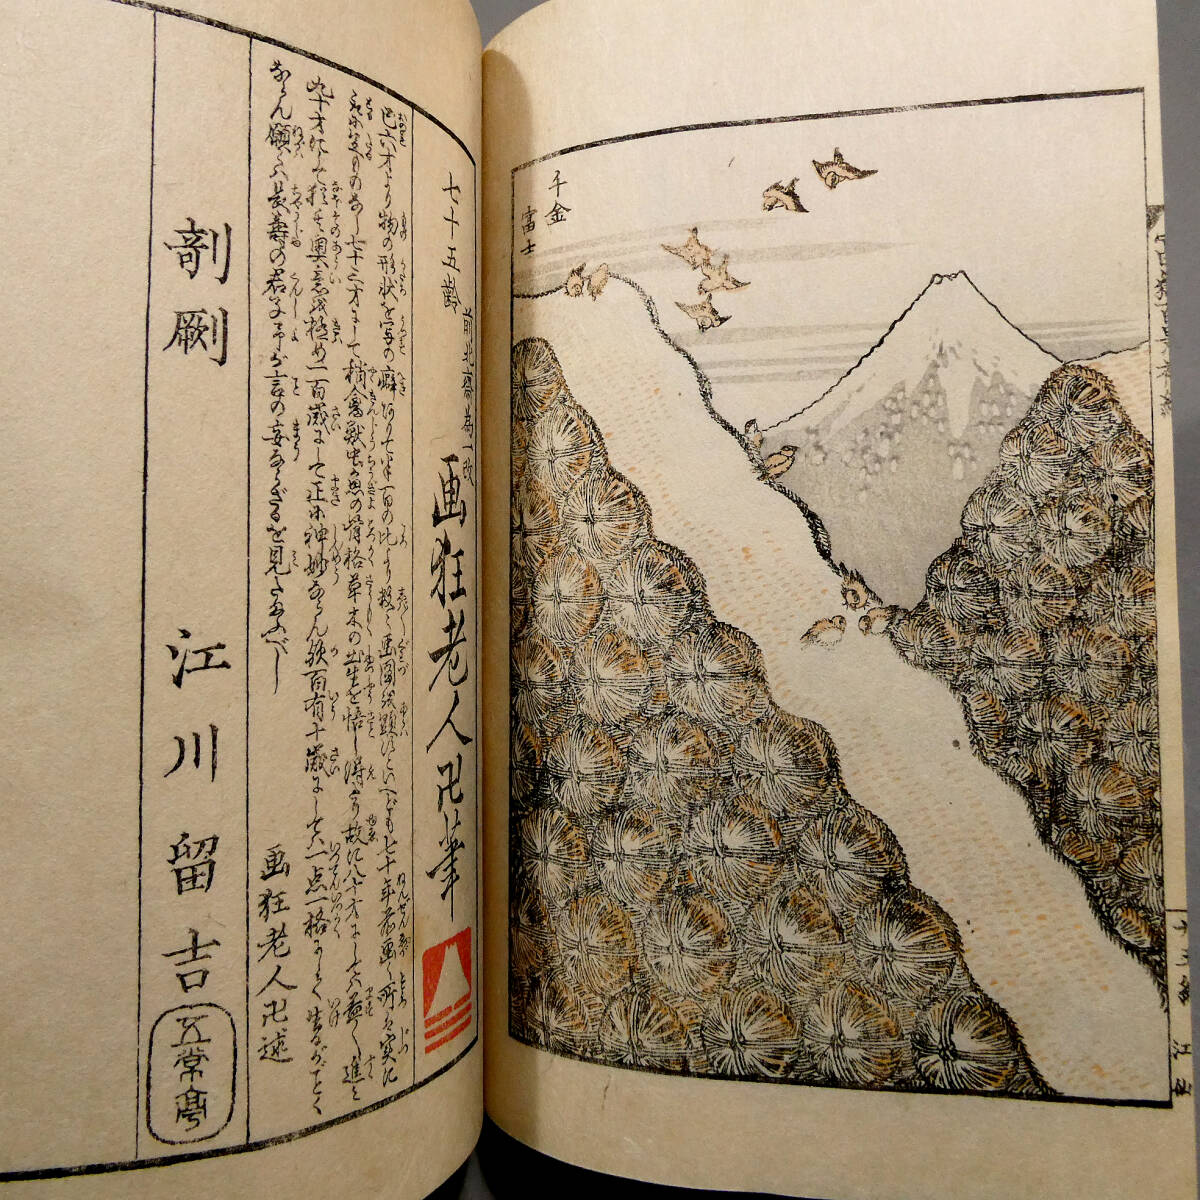 千金
富士
七十五齢
前北斎為一改
画狂老人卍筆
己六才より物の形状を写の癖ありて半百の比より数々画図を顕すといへども七十年前画く所は実に
取に足ものなし七十三才にして稍禽獣虫魚の骨格草木の出生を悟し得たり故に八十才にしては益々進み
九十才にして猶其奥意を極め一百歳にして正に神妙ならん歟百有十歳にしては一点一格にして生るがごとく
ならん願くは長寿の君子予が言の妄ならざるを見たまふべし
画狂老人卍述
剞劂
江川留吉
五常亭